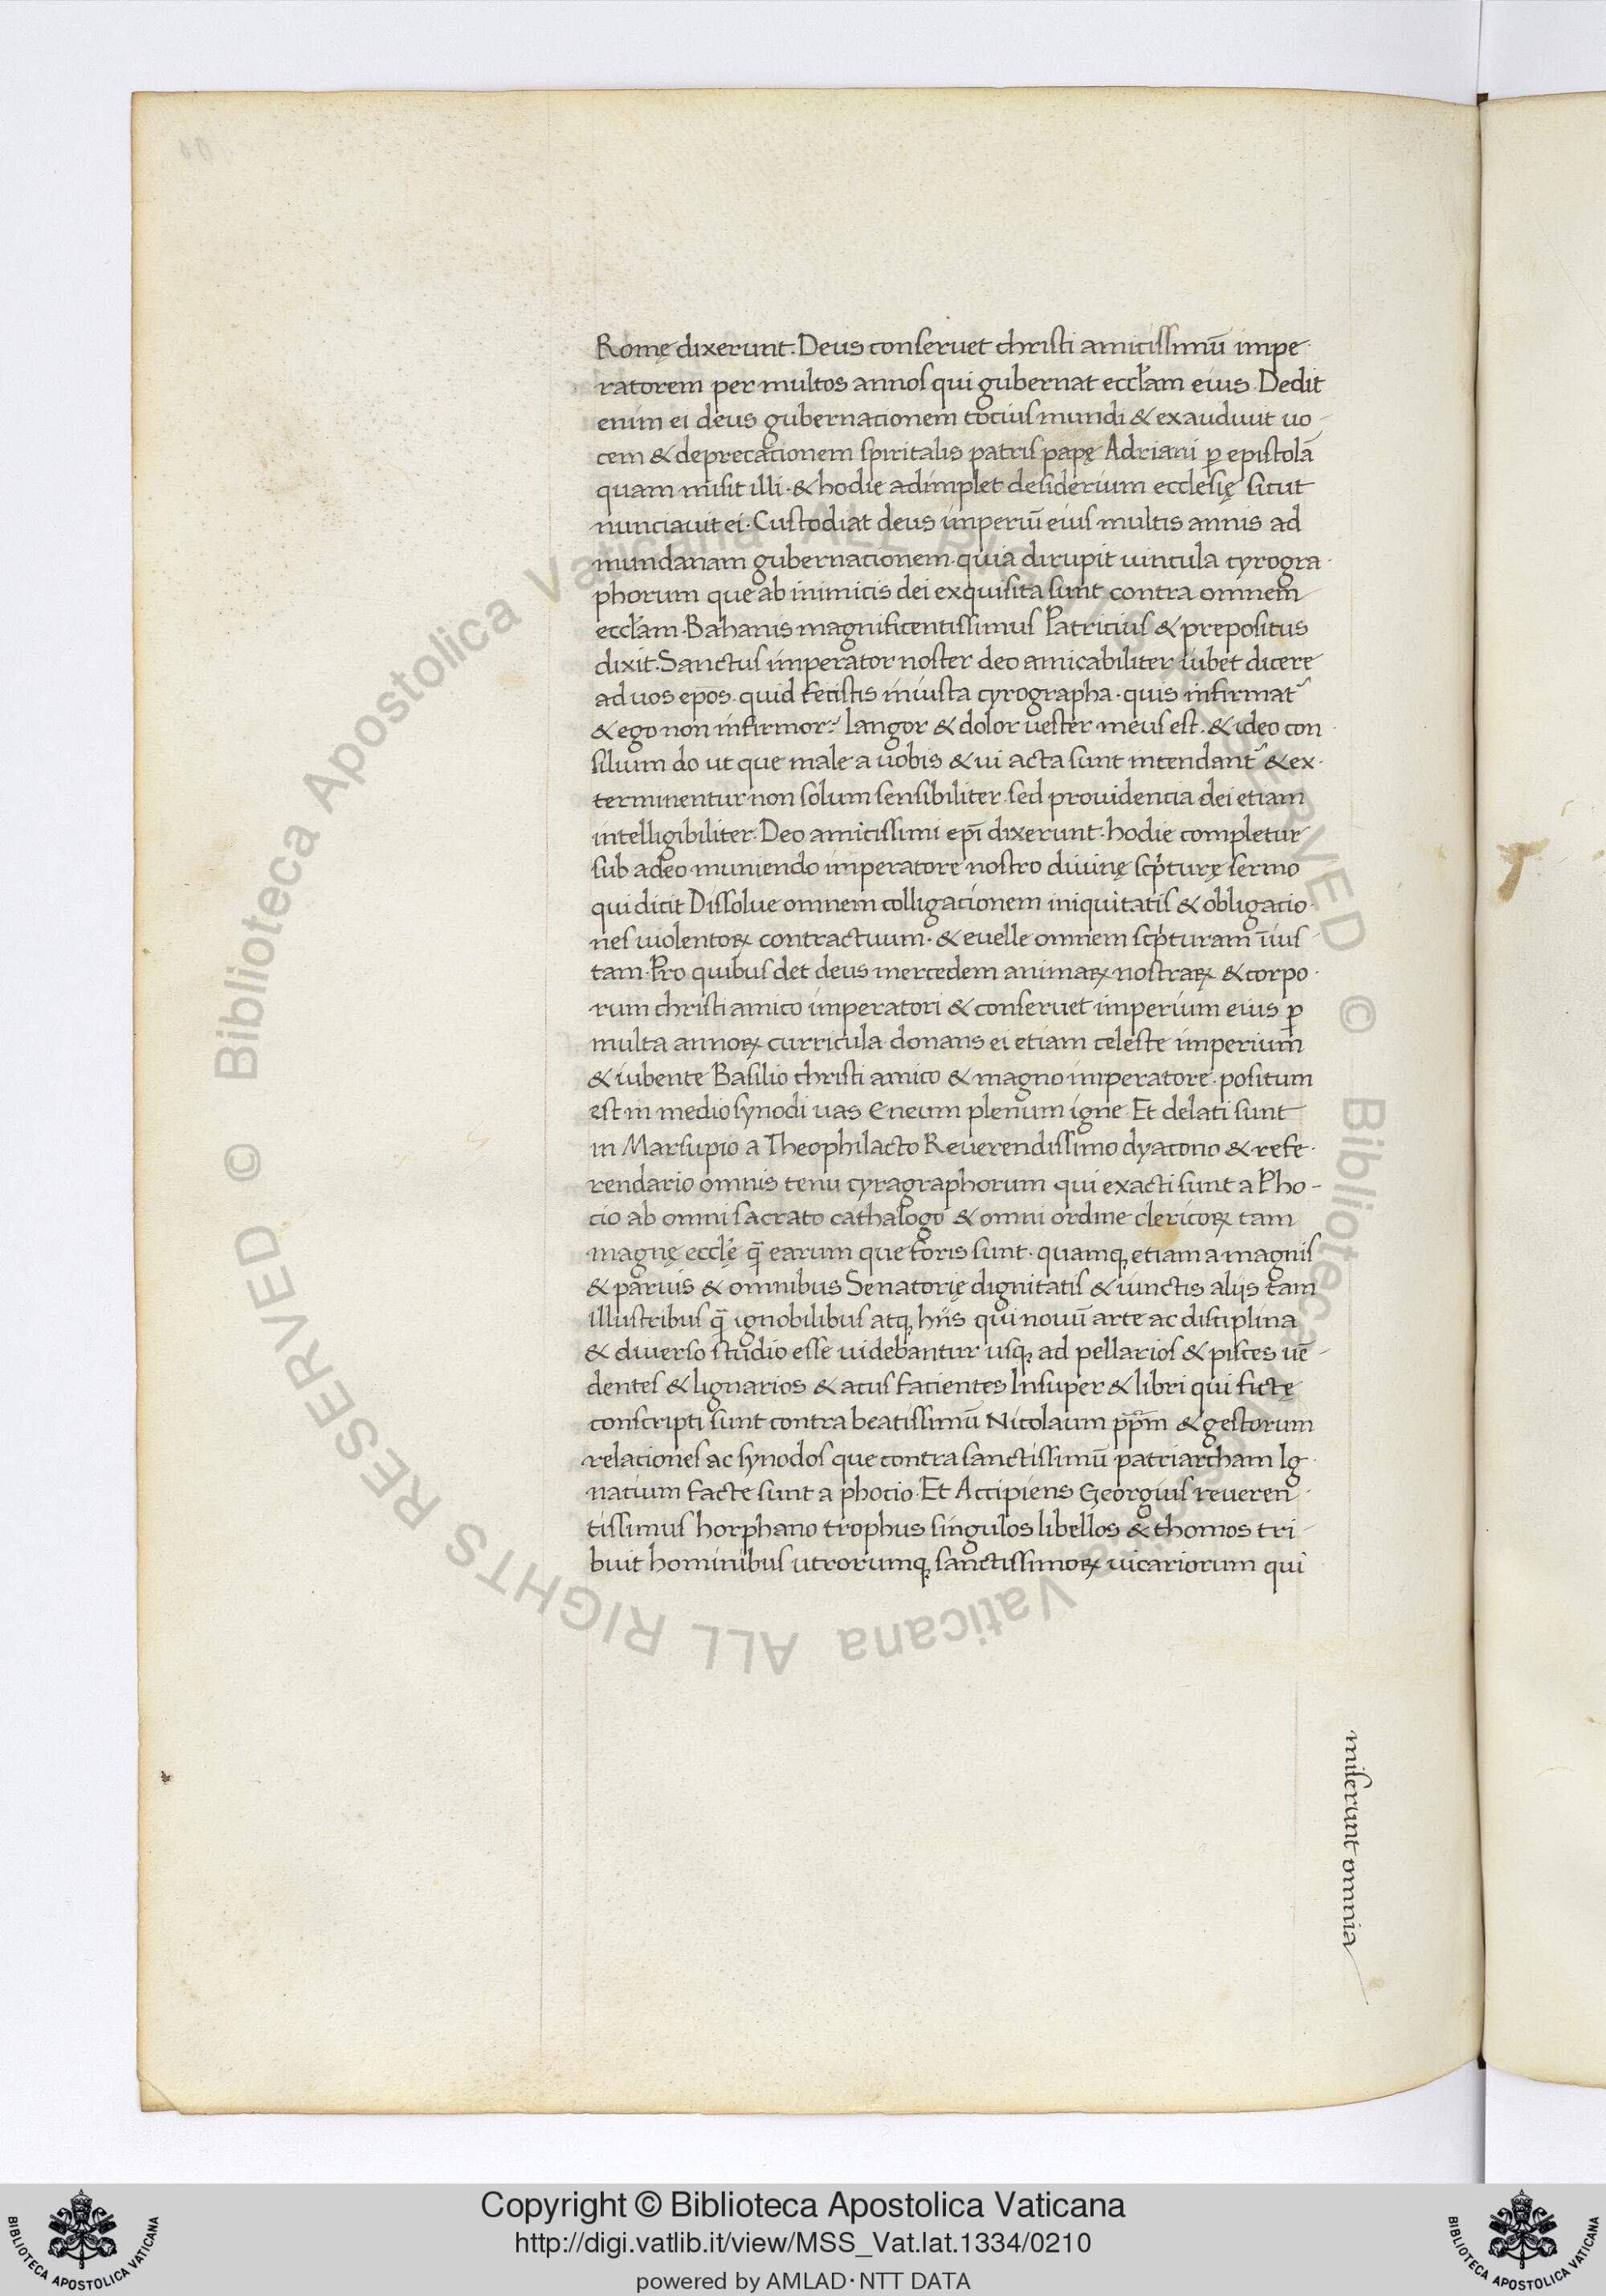 Romę dixerunt. Deus conseruet christi amicissimū impe-
ratorem per multos annos qui gubernat eccƚam eius. Dedit
enim ei deus gubernationem tocius mundi & exaudiuit uo-
cem & deprecationem spiritalis patris papę Adriani ꝑ epistolā
quam misit illi. & hodie adimplet desiderium ecclesię sicut
nunciauit ei. Custodiat deus imperiū eius multis annis ad
mundanam gubernationem. quia dirupit uincula cyrogra-
phorum que ab inimicis dei exquisita sunt contra omnem
eccƚam. Bahanis magnificentissimus Patricius & prepositus
dixit. Sanctus imperator noster deo amicabiliter iubet dicere
ad uos ep̄os. quid fecistis iniusta cyrographa. quis infirmat᷑
& ego non infirmor? langor & dolor uester meus est. & ideo con-
silium do ut que male a uobis & ui acta sunt incendant᷑ & ex-
terminentur non solum sensibiliter. sed prouidencia dei etiam
intelligibiliter. Deo amicissimi ep̄i dixerunt. hodie completur
sub adeo muniendo imperatore nostro diuinę scͥpturę sermo
qui dicit Dissolue omnem colligationem iniquitatis & obligatio-
nes uiolentoꝝ contractuum. & euelle omnem scͥpturam īius-
tam. Pro quibus det deus mercedem animaꝝ nostraꝝ & corpo-
rum christi amico imperatori & conseruet imperium eius ꝑ
multa annoꝝ curricula donans ei etiam celeste imperium
& iubente Basilio christi amico & magno imperatore. positum
est in medio synodi uas Eneum plenum igne. Et delati sunt
in Marsupio a Theophilacto Reuerendissimo dyacono & refe-
rendario omnis tenu cyragraphorum qui exacti sunt a Pho-
cio ab omni sacrato cathalogo & omni ordine clericoꝝ tam
magnę eccƚę q̄ earum que foris sunt. quamqꝫ etiam a magnis
& paruis & omnibus Senatorię dignitatis & iunctis alijs tam
illustribus q̄ ignobilibus atqꝫ hiis qui nouū arte ac disciplina
& diuerso studio esse uidebantur usqꝫ ad pellarios & pisces uē-
dentes & lignarios & acus facientes Insuper & libri qui fictę
conscripti sunt contra beatissimū Nicolaum pp̄m & gestorum
relaciones ac synodos que contra sanctissimū patriarcham Ig-
natium facte sunt a photio. Et Accipiens Georgius reueren-
tissimus horphano trophus singulos libellos & thomos tri-
buit hominibus utrorumqꝫ sanctissimoꝝ uicariorum qui
miserunt omnia
© Biblioteca Apostolica Vaticana ALL RIGHTS RESERVED © Biblioteca Apostolica Vaticana ALL RIGHTS RESERVED
Copyright © Biblioteca Apostolica Vaticana
http://digi.vatlib.it/view/MSS_Vat.lat.1334/0210
powered by AMLAD·NTT DATA
BIBLIOTECA APOSTOLICA VATICANA
BIBLIOTECA APOSTOLICA VATICANA